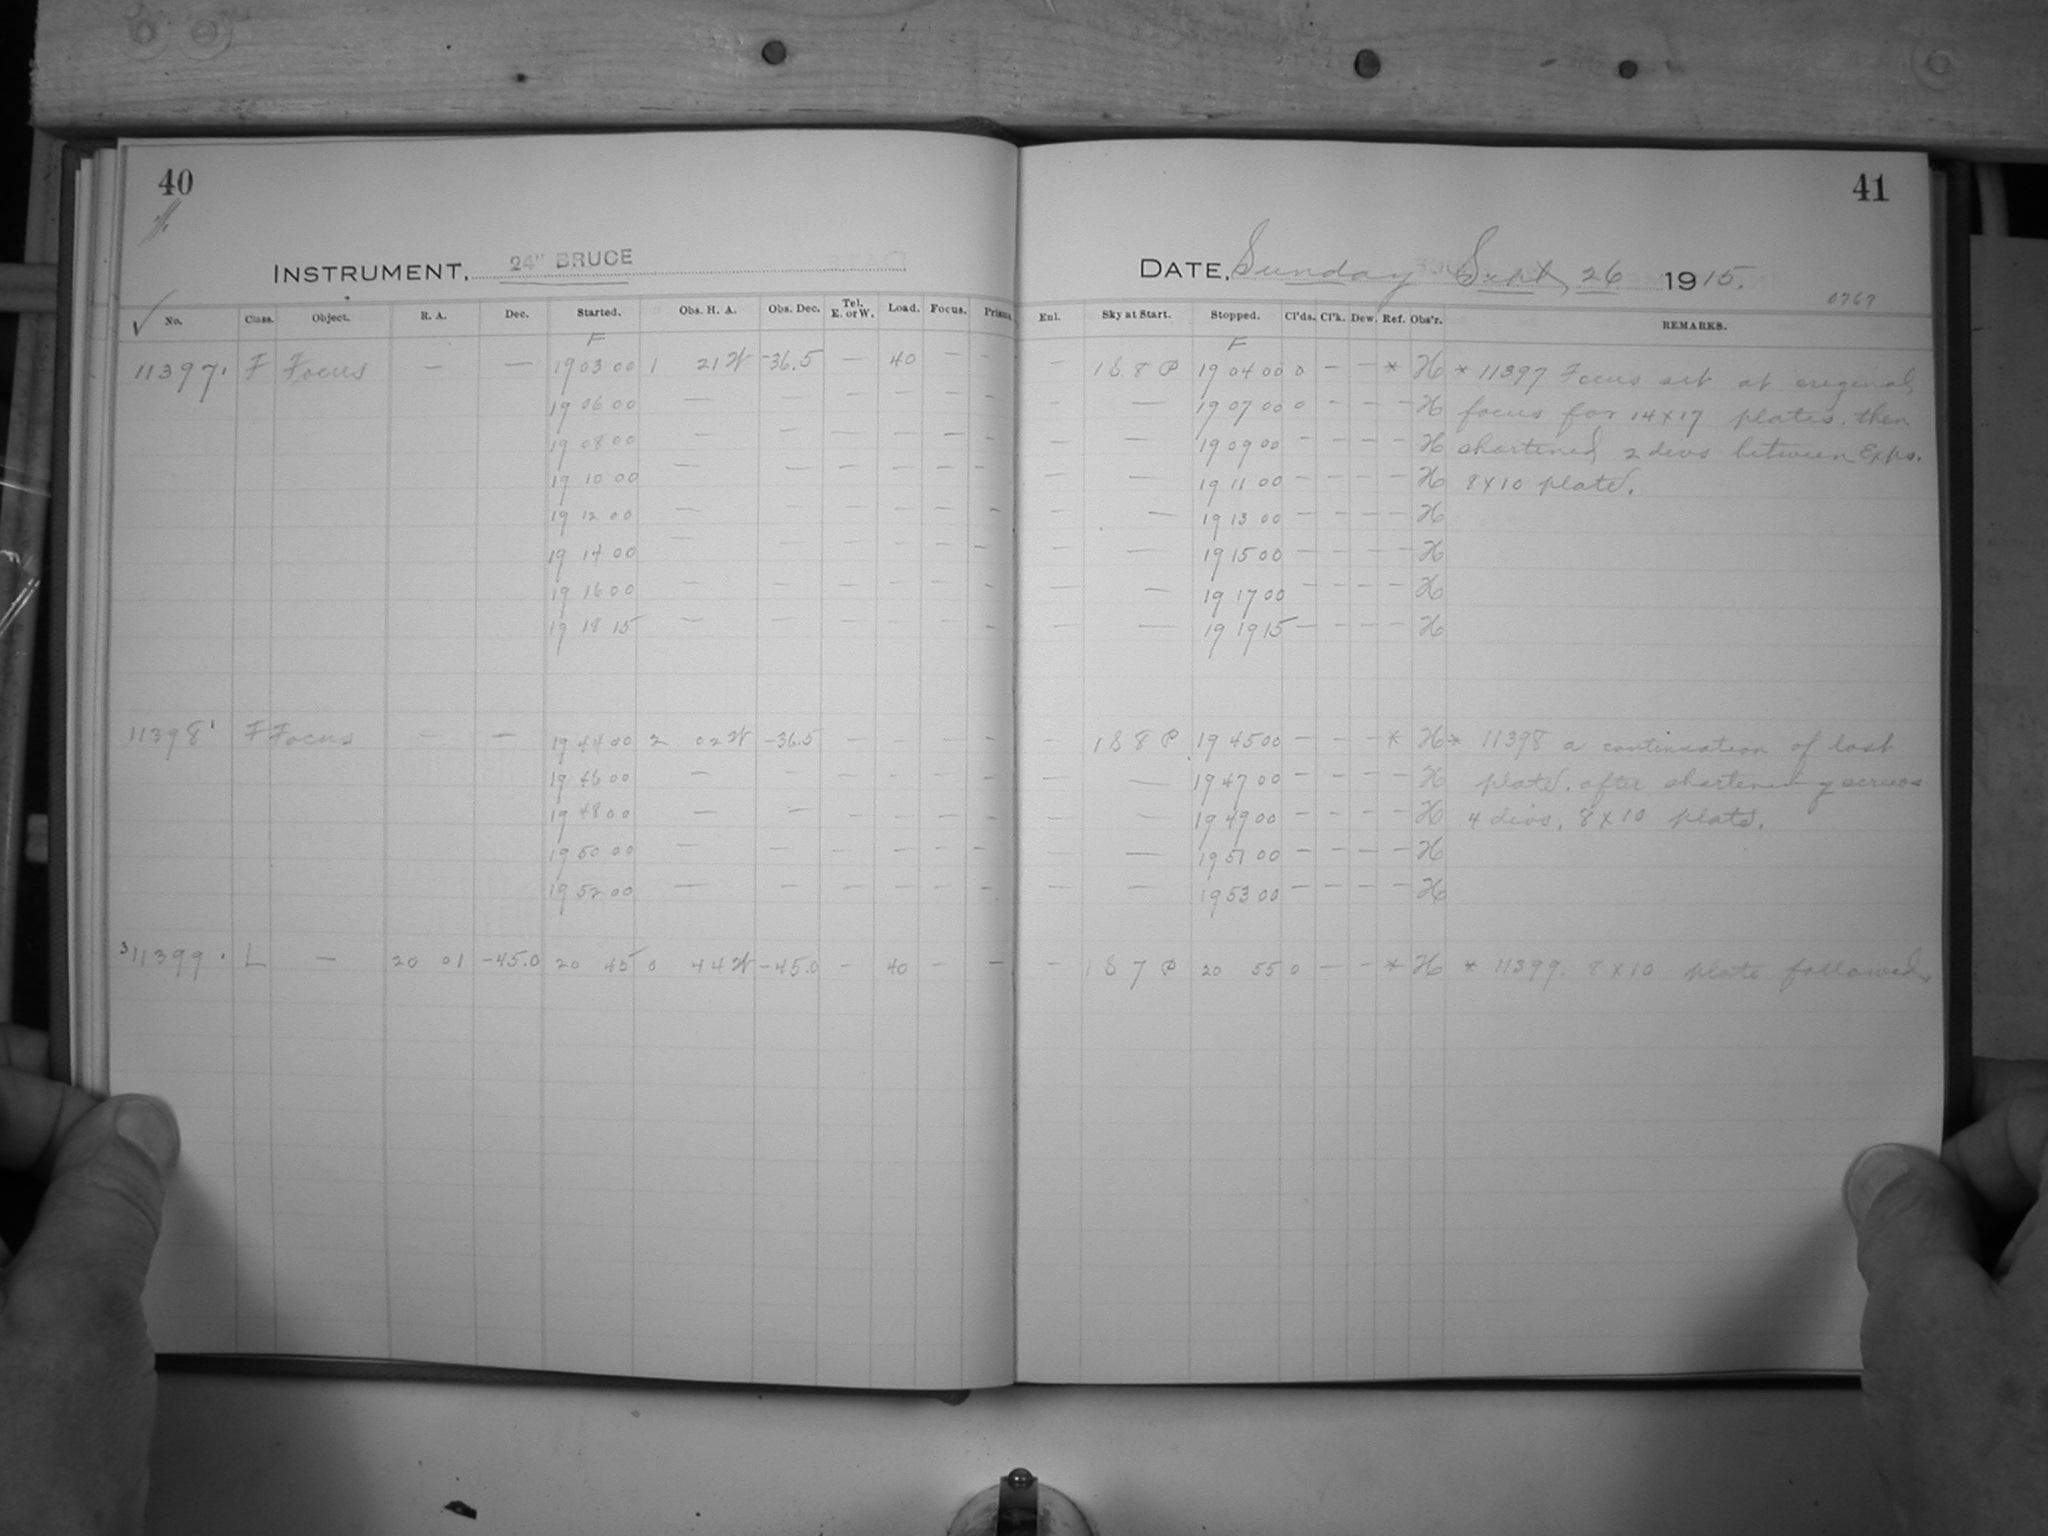 40
41
INSTRUMENT, 24" BRUCE
DATE, Sunday Sept, 26 1915.
0767
No. Class. Object. R. A. Dec. Started. Obs. H. A. Obs. Dec. Tel. E. or W. Load. Focus. Prism. Enl. Sky at Start. Stopped. Cl'ds. Cl'k. Dew. Ref. Obs'r. REMARKS.
F F
11397 F Focus — — 19 03 00 1 21 W -36.5 — 40 — — — 1 8.8 P 19 04 00 0 — — * H * 11397 Focus set at original
19 06 00 — — — — — — — — 19 07 00 0 — — — H focus for 14x17 plates. then
19 08 00 — — — — — — — — 19 09 00 — — — — H shortened 2 divs between Exps.
19 10 00 — — — — — — — — 19 11 00 — — — — H 8x10 plate.
19 12 00 — — — — — — — — 19 13 00 — — — — H
19 14 00 — — — — — — — — 19 15 00 — — — — H
19 16 00 — — — — — — — — 19 17 00 — — — — H
19 18 15 — — — — — — — — 19 19 15 — — — — H
11398 F Focus — — 19 44 00 2 02 W -36.5 — — — — — 1 8 8 P 19 45 00 — — — * H * 11398 a continuation of last
19 46 00 — — — — — — — — 19 47 00 — — — — H plate. after shortening screws
19 48 00 — — — — — — — — 19 49 00 — — — — H 4 divs. 8x10 plate.
19 50 00 — — — — — — — — 19 51 00 — — — — H
19 52 00 — — — — — — — — 19 53 00 — — — — H
3 11399 L — 20 01 -45.0 20 45 0 44 W -45.0 — 40 — — — 1 8 7 P 20 55 0 — — * H * 11399. 8x10 plate followed.